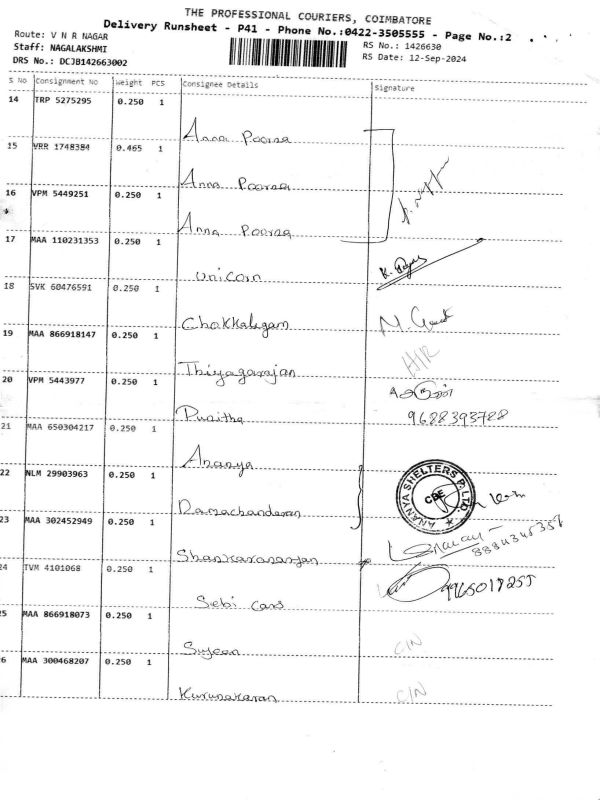 THE PROFESSIONAL COURIERS, COIMBATORE
Delivery Runsheet - P41 - Phone No.:0422-3505555 - Page No.:2
Route: V N R NAGAR
RS No.: 1426630
Staff: NAGALAKSHMI
RS Date: 12-Sep-2024
DRS No.: DCJB142663002
S No Consignment No Weight PCS Consignee Details Signature
14 TRP 5275295 0.250 1
Anna Poorna
15 VRR 1748384 0.465 1
Anna Poorna
16 VPM 5449251 0.250 1
Anna Poorna
17 MAA 110231353 0.250 1
Unicorn
18 SVK 60476591 0.250 1
Chakkalingam
19 MAA 866918147 0.250 1
Thiyagarajan H/R
20 VPM 5443977 0.250 1
Punitha 9688393788
21 MAA 650304217 0.250 1
Ananya
22 NLM 29903963 0.250 1
Ramachandran
ANANYA SHELTERS P. LTD
CBE
23 MAA 302452949 0.250 1
Shankaranarayan
24 TVM 4101068 0.250 1
Sebi cars
25 MAA 866918073 0.250 1
Sujeen C/N
26 MAA 300468207 0.250 1
Karunakaran C/N